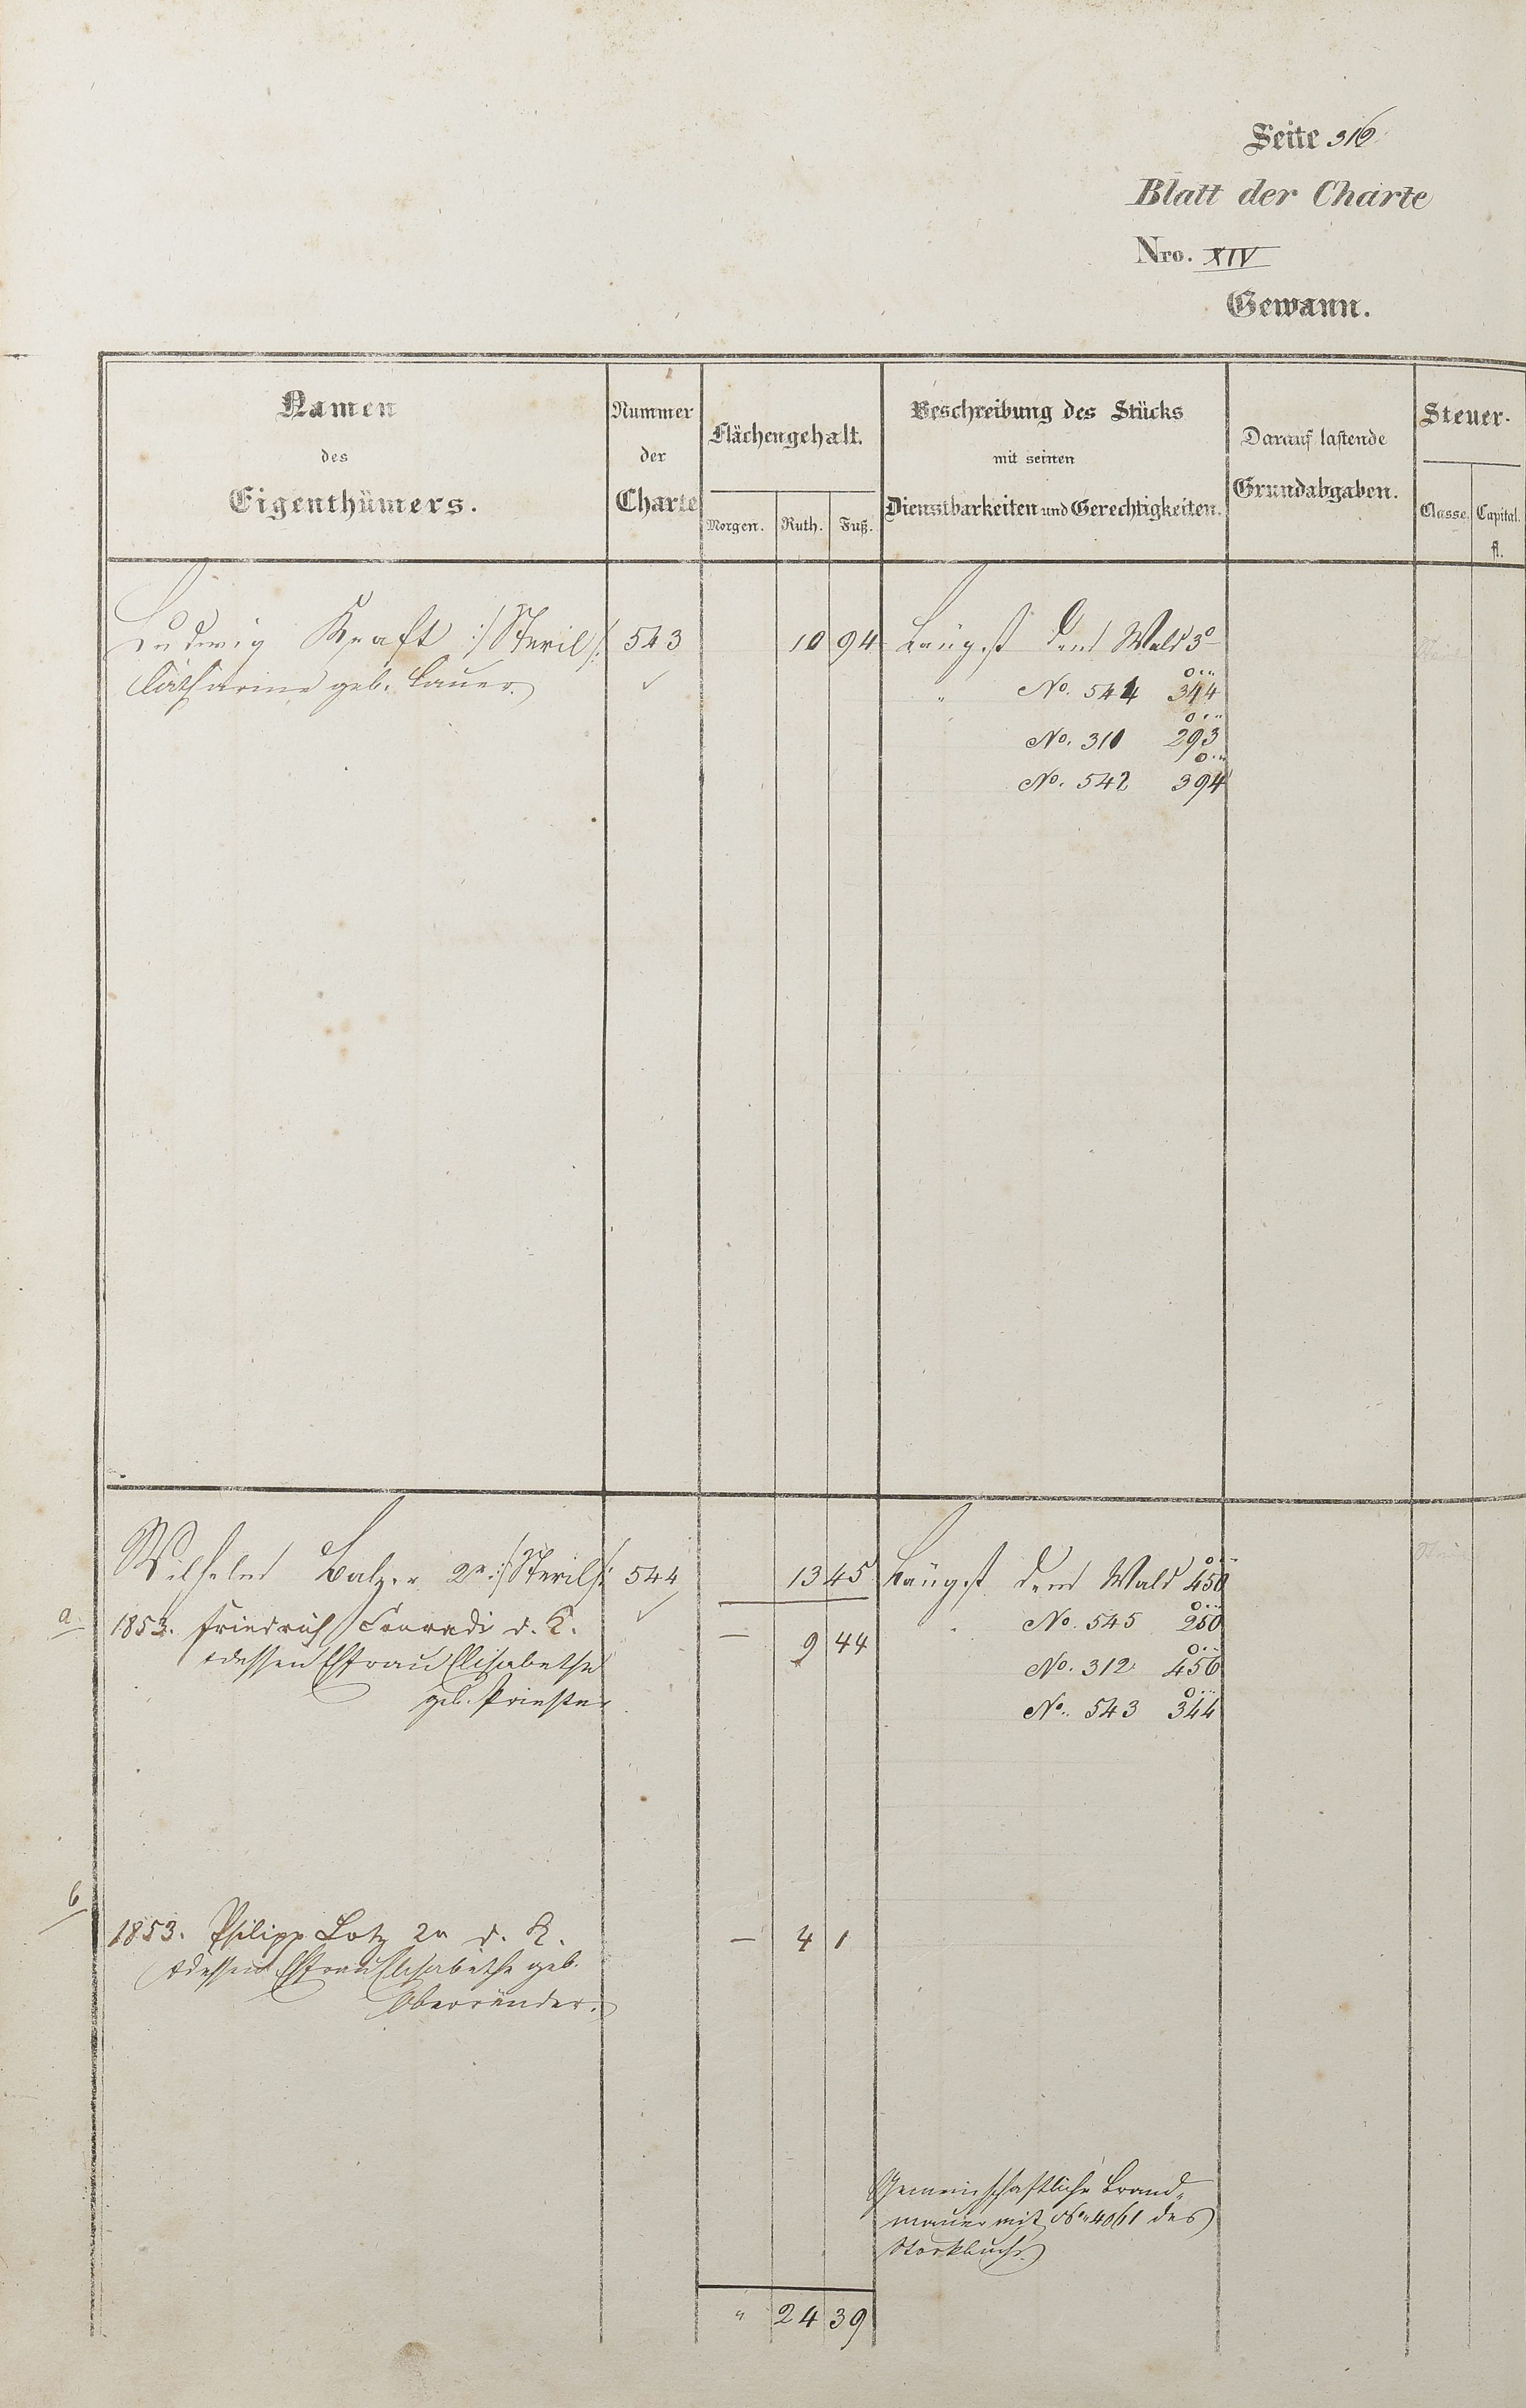 Seite 316
Blatt der Charte
Nro. XIV
Gewann.
Namen
des
Eigenthümers.
Nummer
der
Charte
Flächengehalt.
Morgen. Ruth. Fuß.
Beschreibung des Stücks
mit seinen
Dienstbarkeiten und Gerechtigkeiten.
Darauf lastende
Grundabgaben.
Steuer-
Classe. Capital.
fl.
Ludwig Kraft 543 10 94 Längst dem Wald
Catharine geb. Lauer. No. 544 344
No. 310 293
No. 542 394
Wilhelm Balzer 2r 544 13 45 Längst dem Wald 450
a 1853. Friedrich Conradi d. K. — 9 44 No. 545 250
dessen Ehfrau Elisabethe No. 312 456
geb. Priester No. 543 344
b
1853. Philipp Lotz 2r d. K. — 4 1
dessen Ehfrau Elisabethe geb.
Gemeinschaftliche Brand-
mauer mit No. 4061 des
Stockbuchs
" 24 39